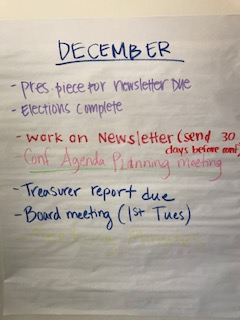 DECEMBER
- Pres. piece for newsletter Due
- Elections Complete
- Work on Newsletter (send 30
days before conf)
- Conf Agenda Planning meeting
- Treasurer report due
- Board meeting (1st Tues)